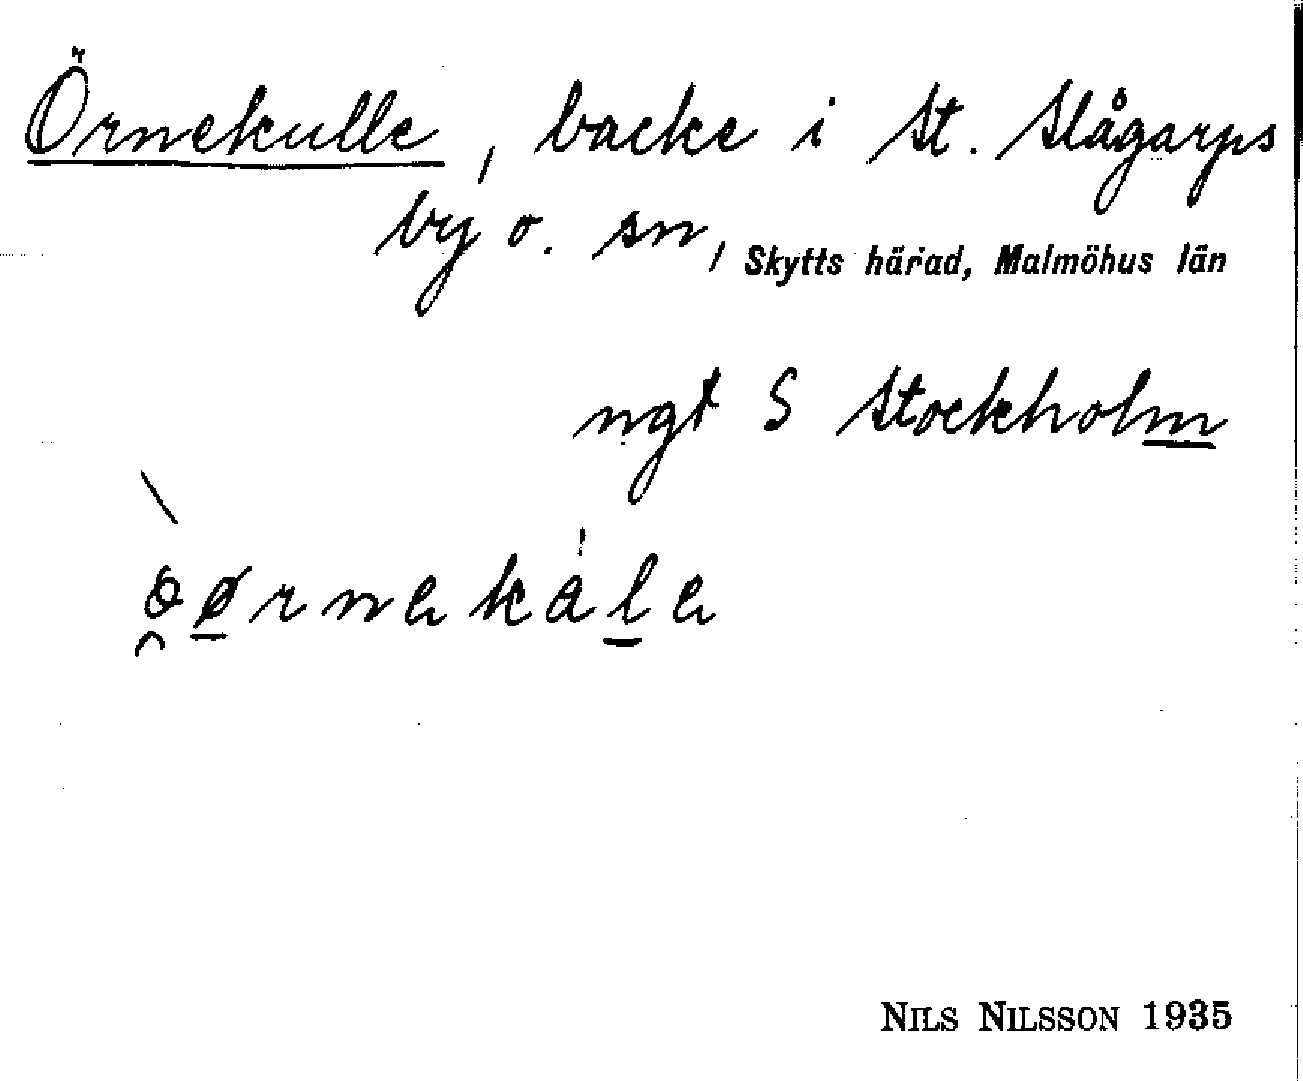 Örnekulle, backe i St. Slågarps
by o. sn, Skytts härad, Malmöhus län
ngt S Stockholm
Nils Nilsson 1935